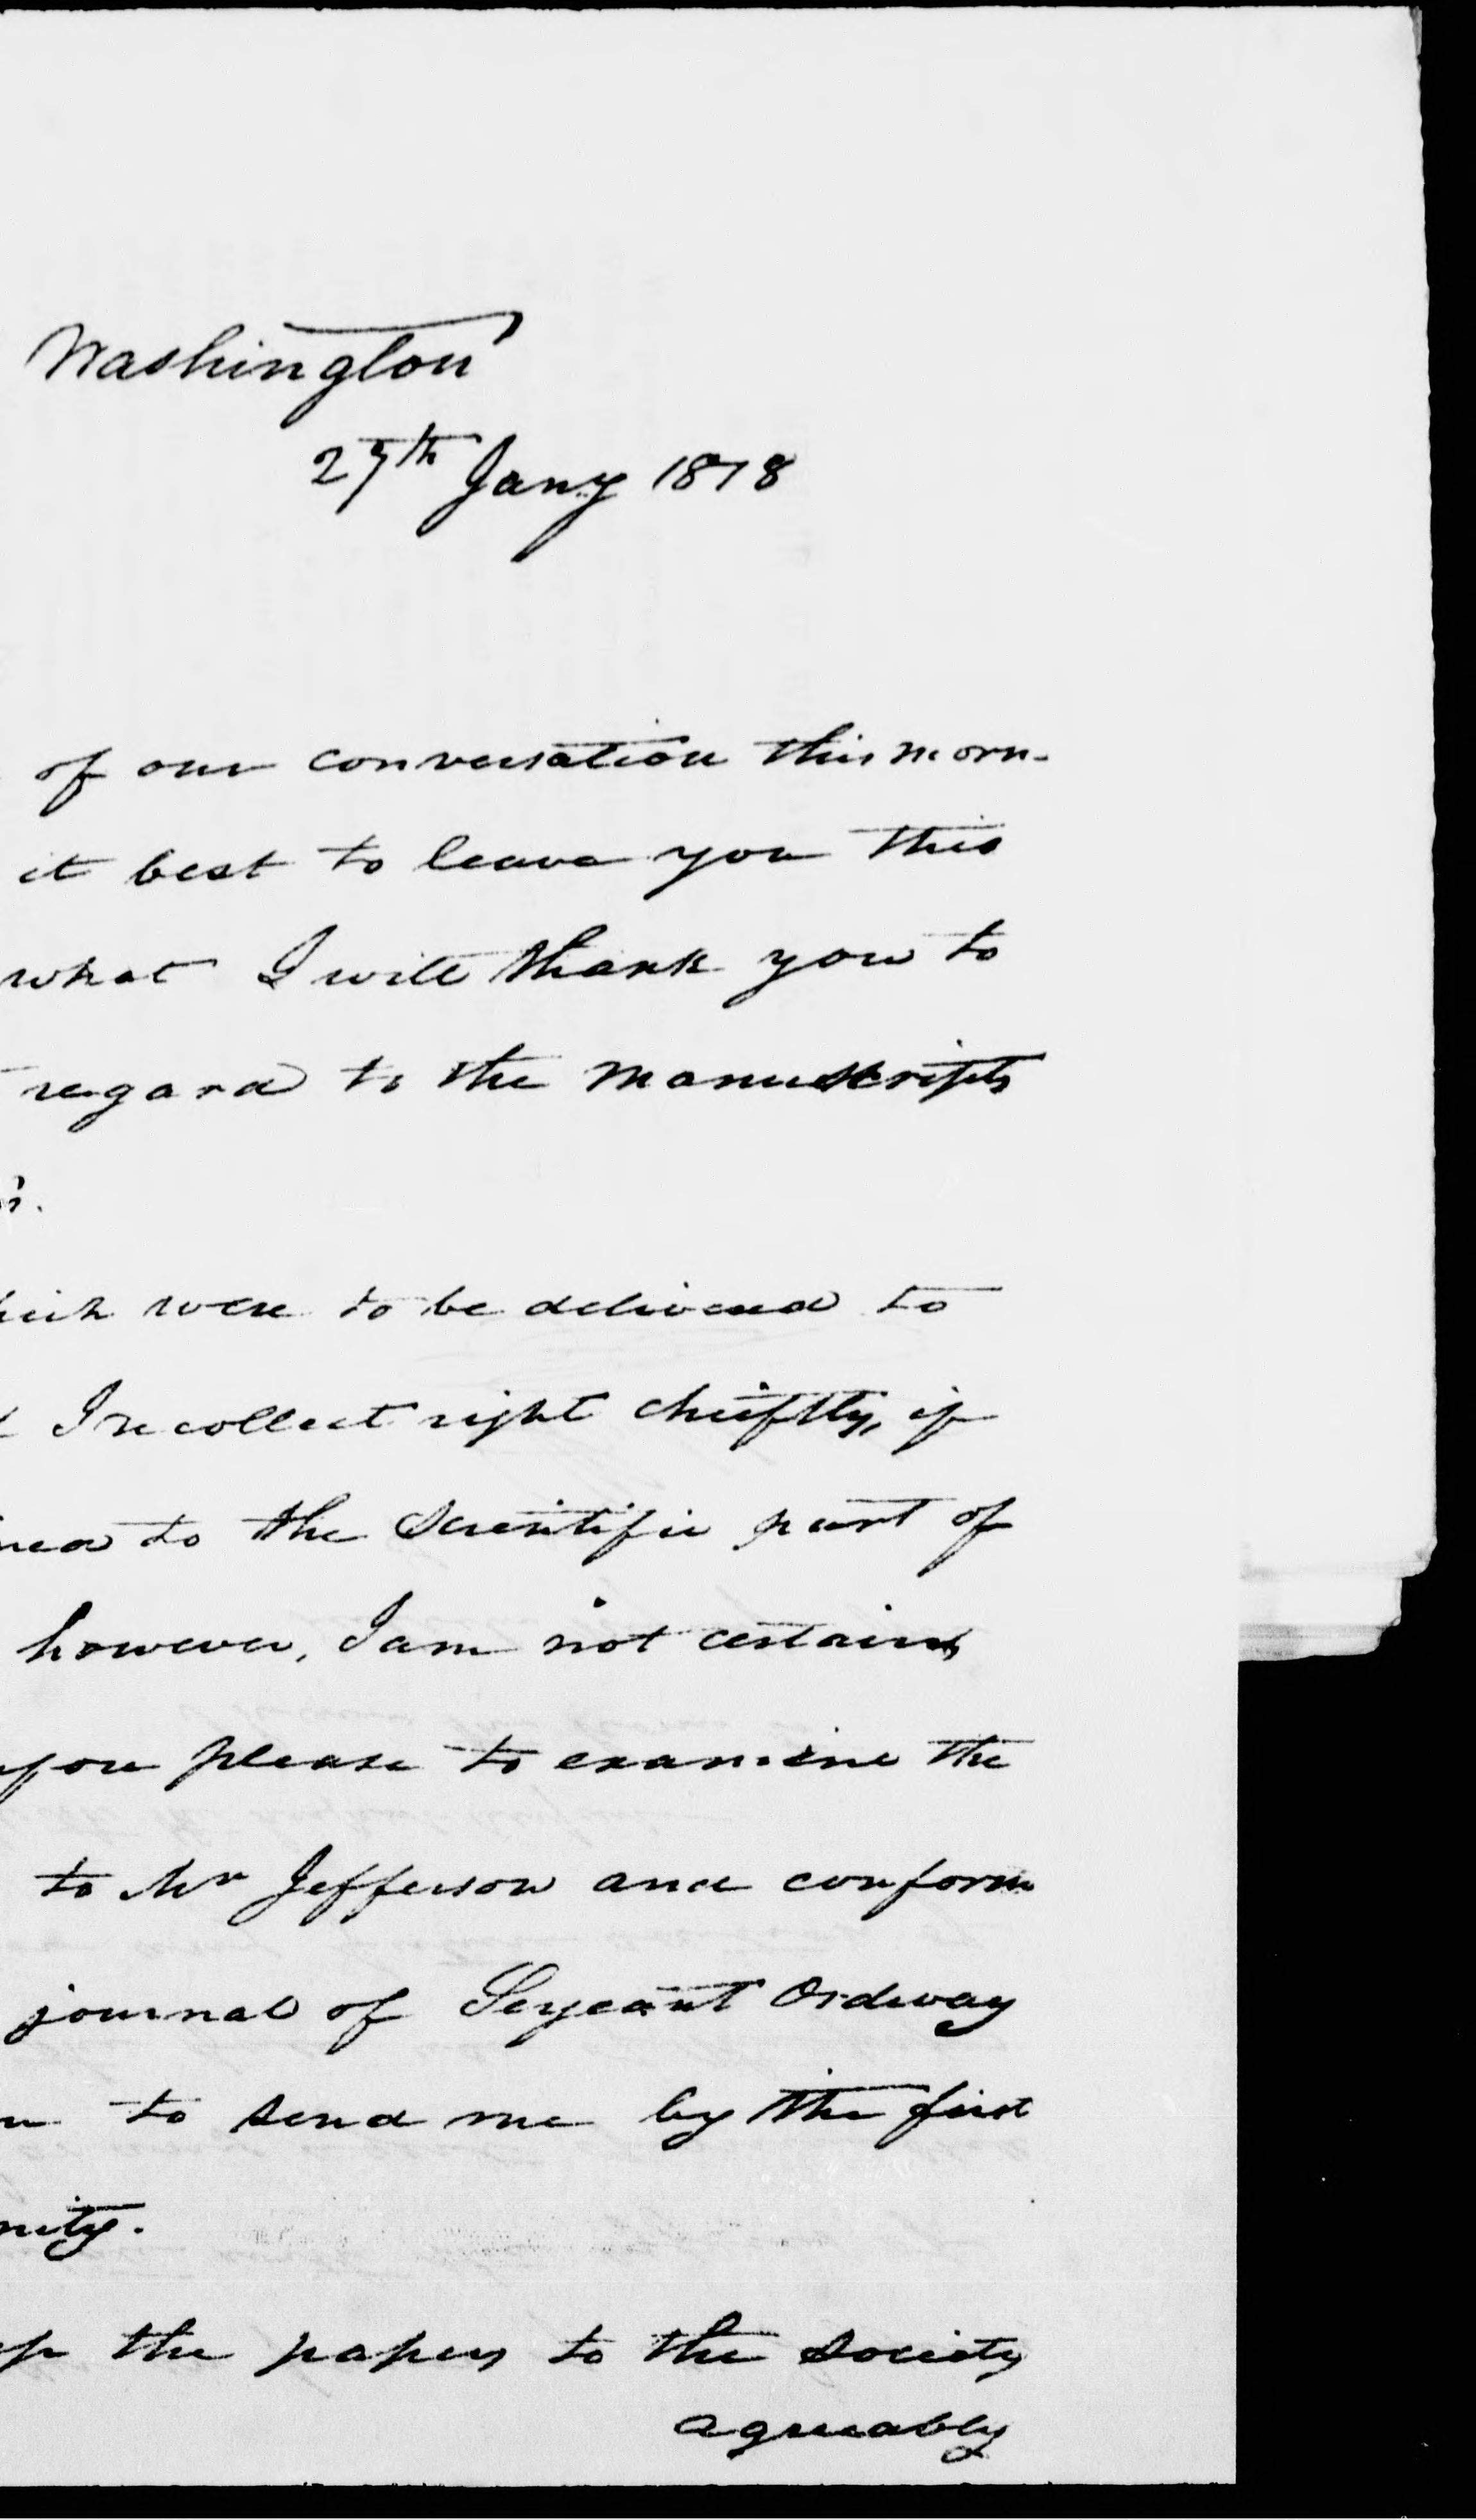 Washington
27th Jany 1818
of our conversation this morn-
it best to leave you this
what I will thank you to
regard to the manuscripts
were to be delivered to
I recollect right chiefly, if
to the Scientific part of
however, I am not certain
you please to examine the
to Mr Jefferson and conform
journal of Serjeant Ordway
to send me by the first
nity.
the papers to the Society
agreeably